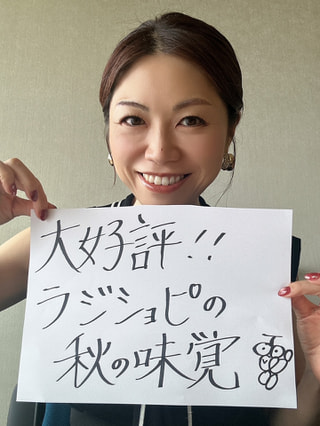 大好評!!
ラジショピの
秋の味覚